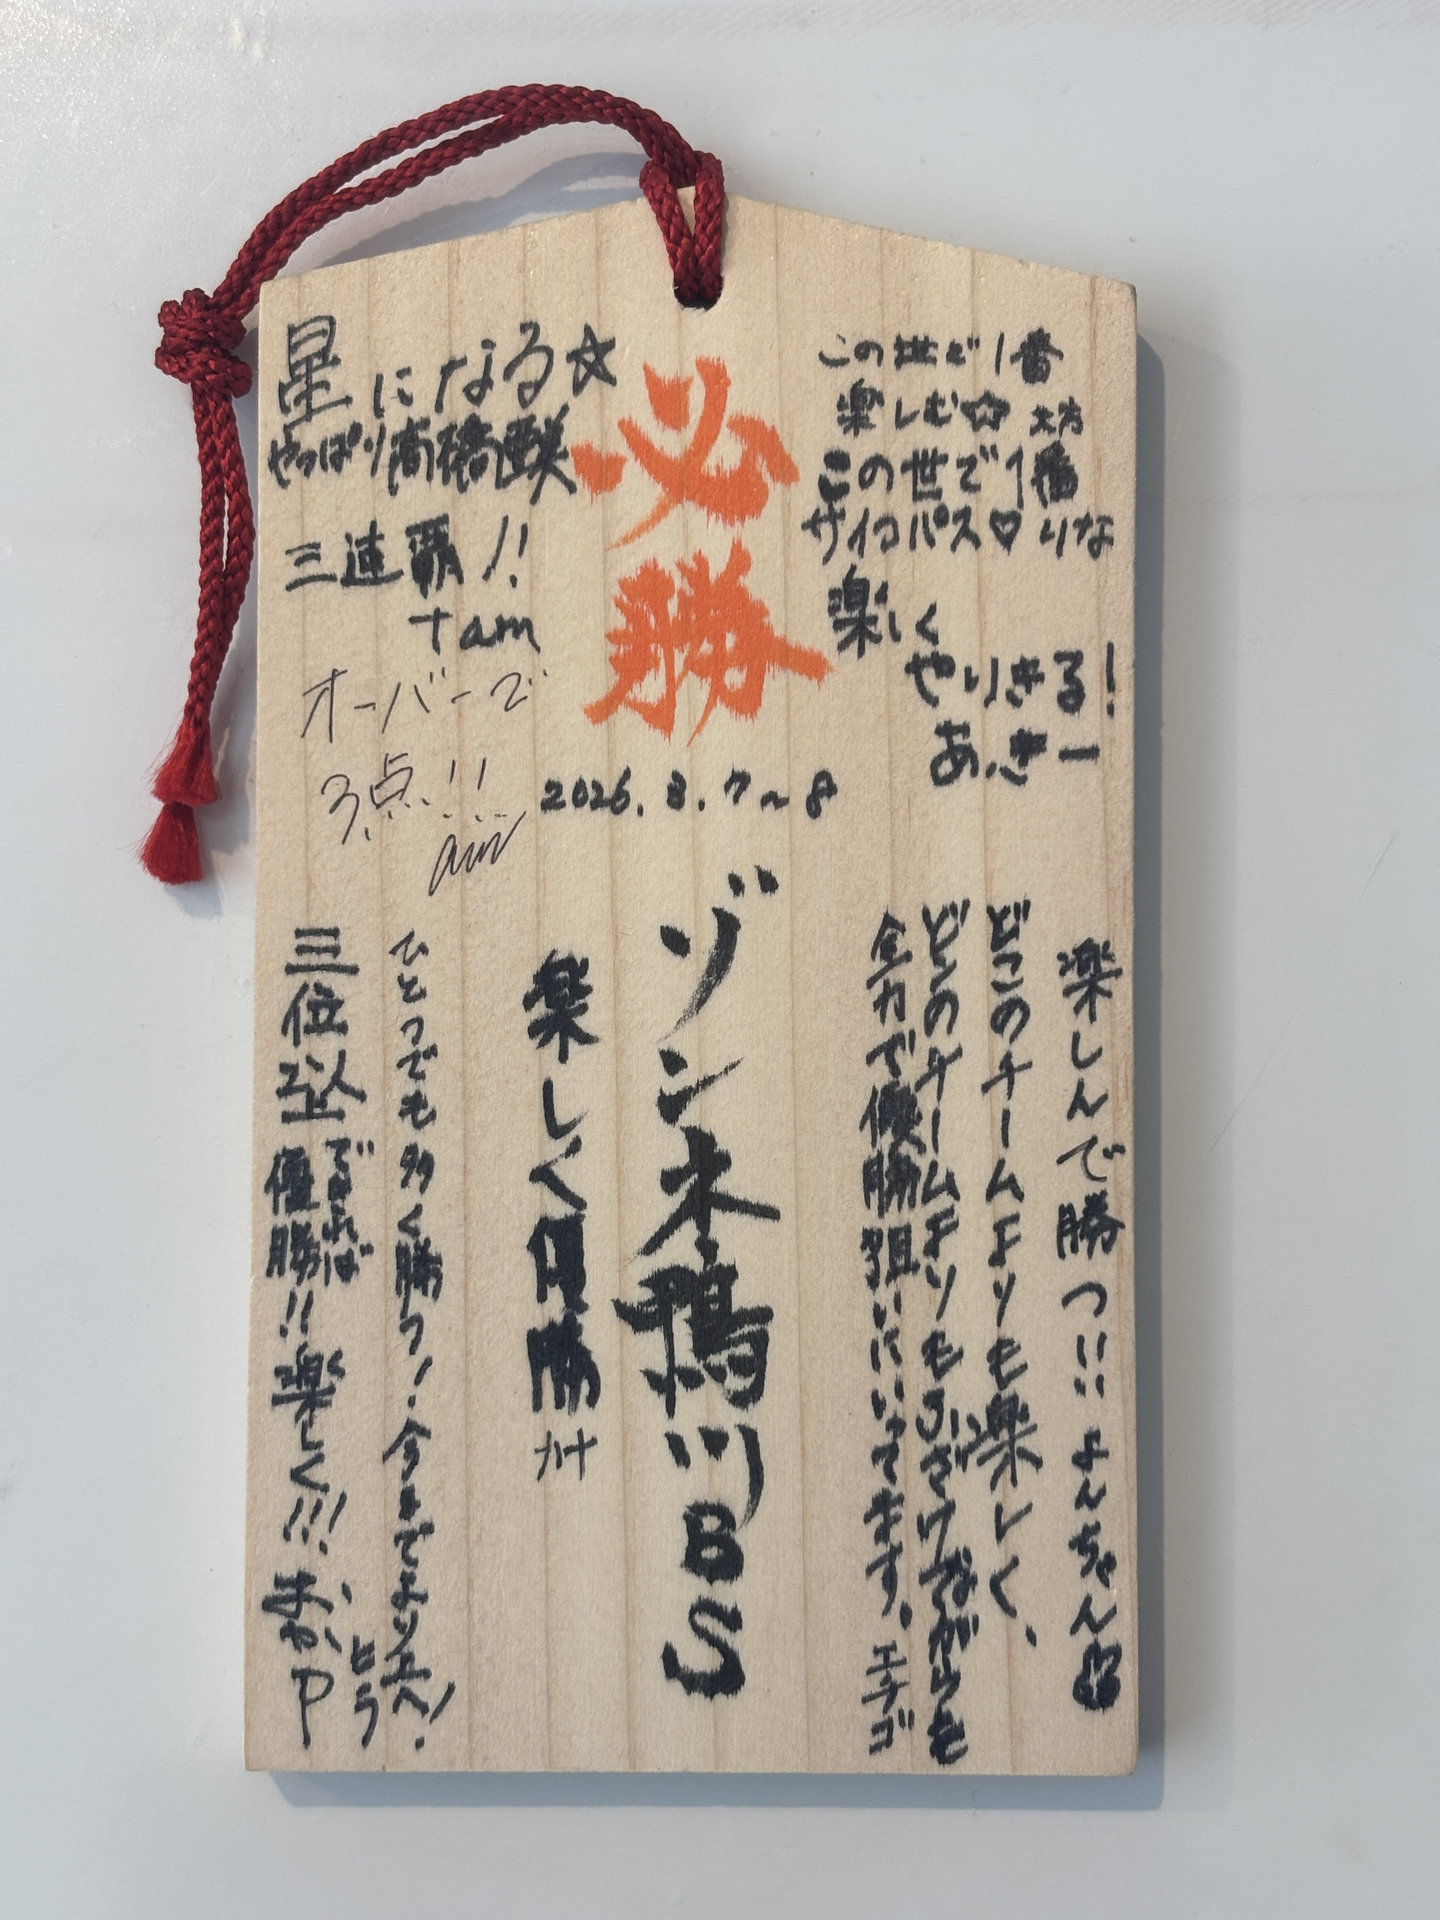 必勝
2026.8.7〜8
ゾンネ鴨川BS
この世で1番
楽しむ☆ 大方
この世で1番
サイコパス♡ りな
楽しく
やりきる!
あ.きー
星になる☆
やっぱり高橋
三連覇!!
tam
オーバーで
3点!!
楽しんで勝つ!! よんちゃん
どこのチームよりも楽しく、
どこのチームよりもふざけながらも
全力で優勝狙いにいってます。エチゴ
楽しく優勝
ひとつでも多く勝つ!今までより上へ! ヒラ
三位以上であれば優勝!!楽しく!!! まかP